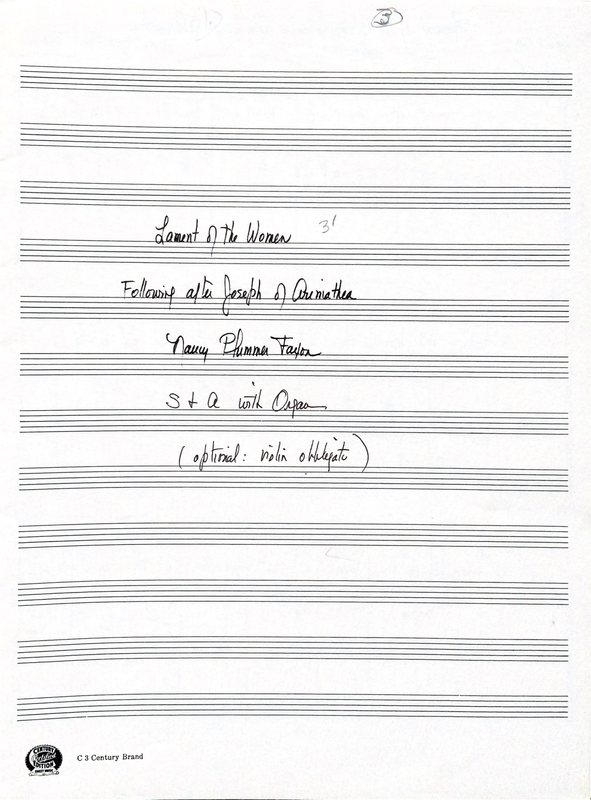 3
Lament of the Women 3'
Following after Joseph of Arimathea
Nancy Plummer Faxon
S + A with Organ
(optional: violin obbligato)
CENTURY
Certified
EDITION
SHEET MUSIC
C 3 Century Brand